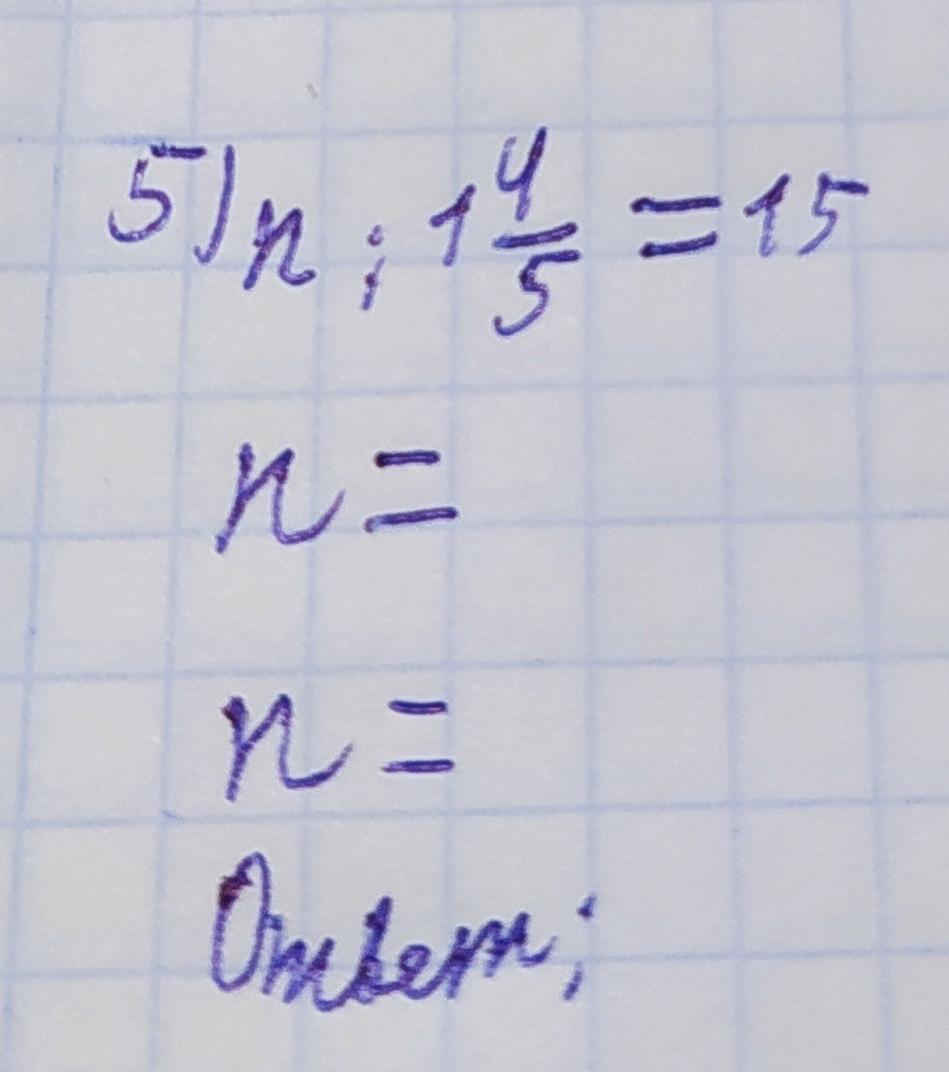 5) n : 1 4/5 = 15
n =
n =
Ответ: